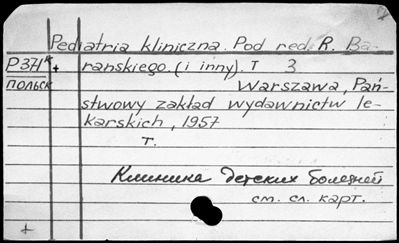 Pediatria kliniczna. Pod red. R. Ba-
P371к + ranskiego. (i inny). T 3
польск Warszawa, Pań-
stwowy zakład wydawnictw le-
karskich, 1957
т.
Клиника детских болезней
см. сл. карт.
+